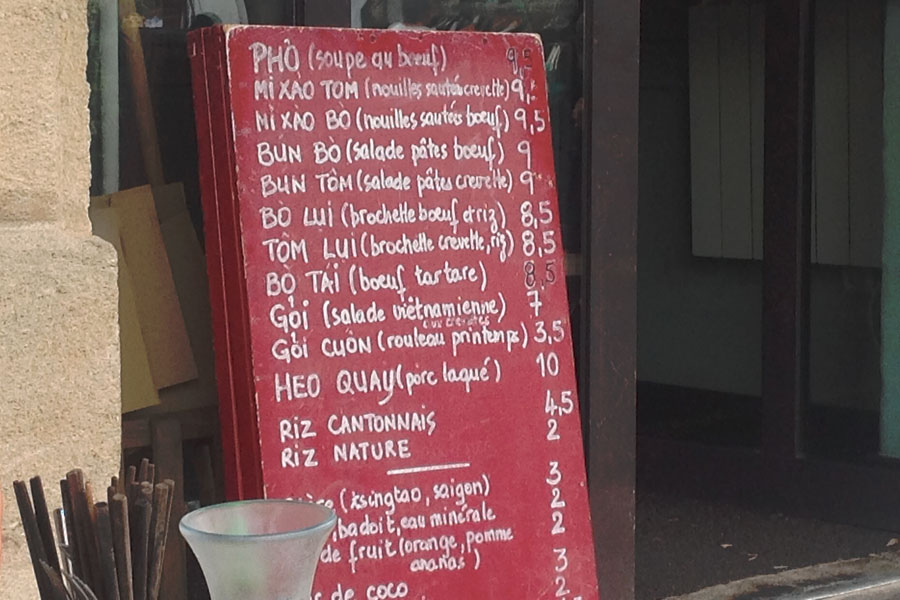 PHỞ (soupe au bœuf) 9,5
MÌ XÀO TÔM (nouilles sautées crevette) 9,5
MÌ XÀO BÒ (nouilles sautées bœuf) 9,5
BÚN BÒ (salade pâtes bœuf) 9
BÚN TÔM (salade pâtes crevette) 9
BÒ LUI (brochette bœuf et riz) 8,5
TÔM LUI (brochette crevette, riz) 8,5
BÒ TÁI (bœuf tartare) 8,5
Gỏi (salade viêtnamienne) 7
aux crevettes
Gỏi CUÔN (rouleau printemps) 3,5
HEO QUAY (porc laqué) 10
RIZ CANTONNAIS 4,5
RIZ NATURE 2
(tsingtao, saigon) 3
badoit, eau minérale 2
de fruit (orange, pomme 2
ananas)
de coco 3
2